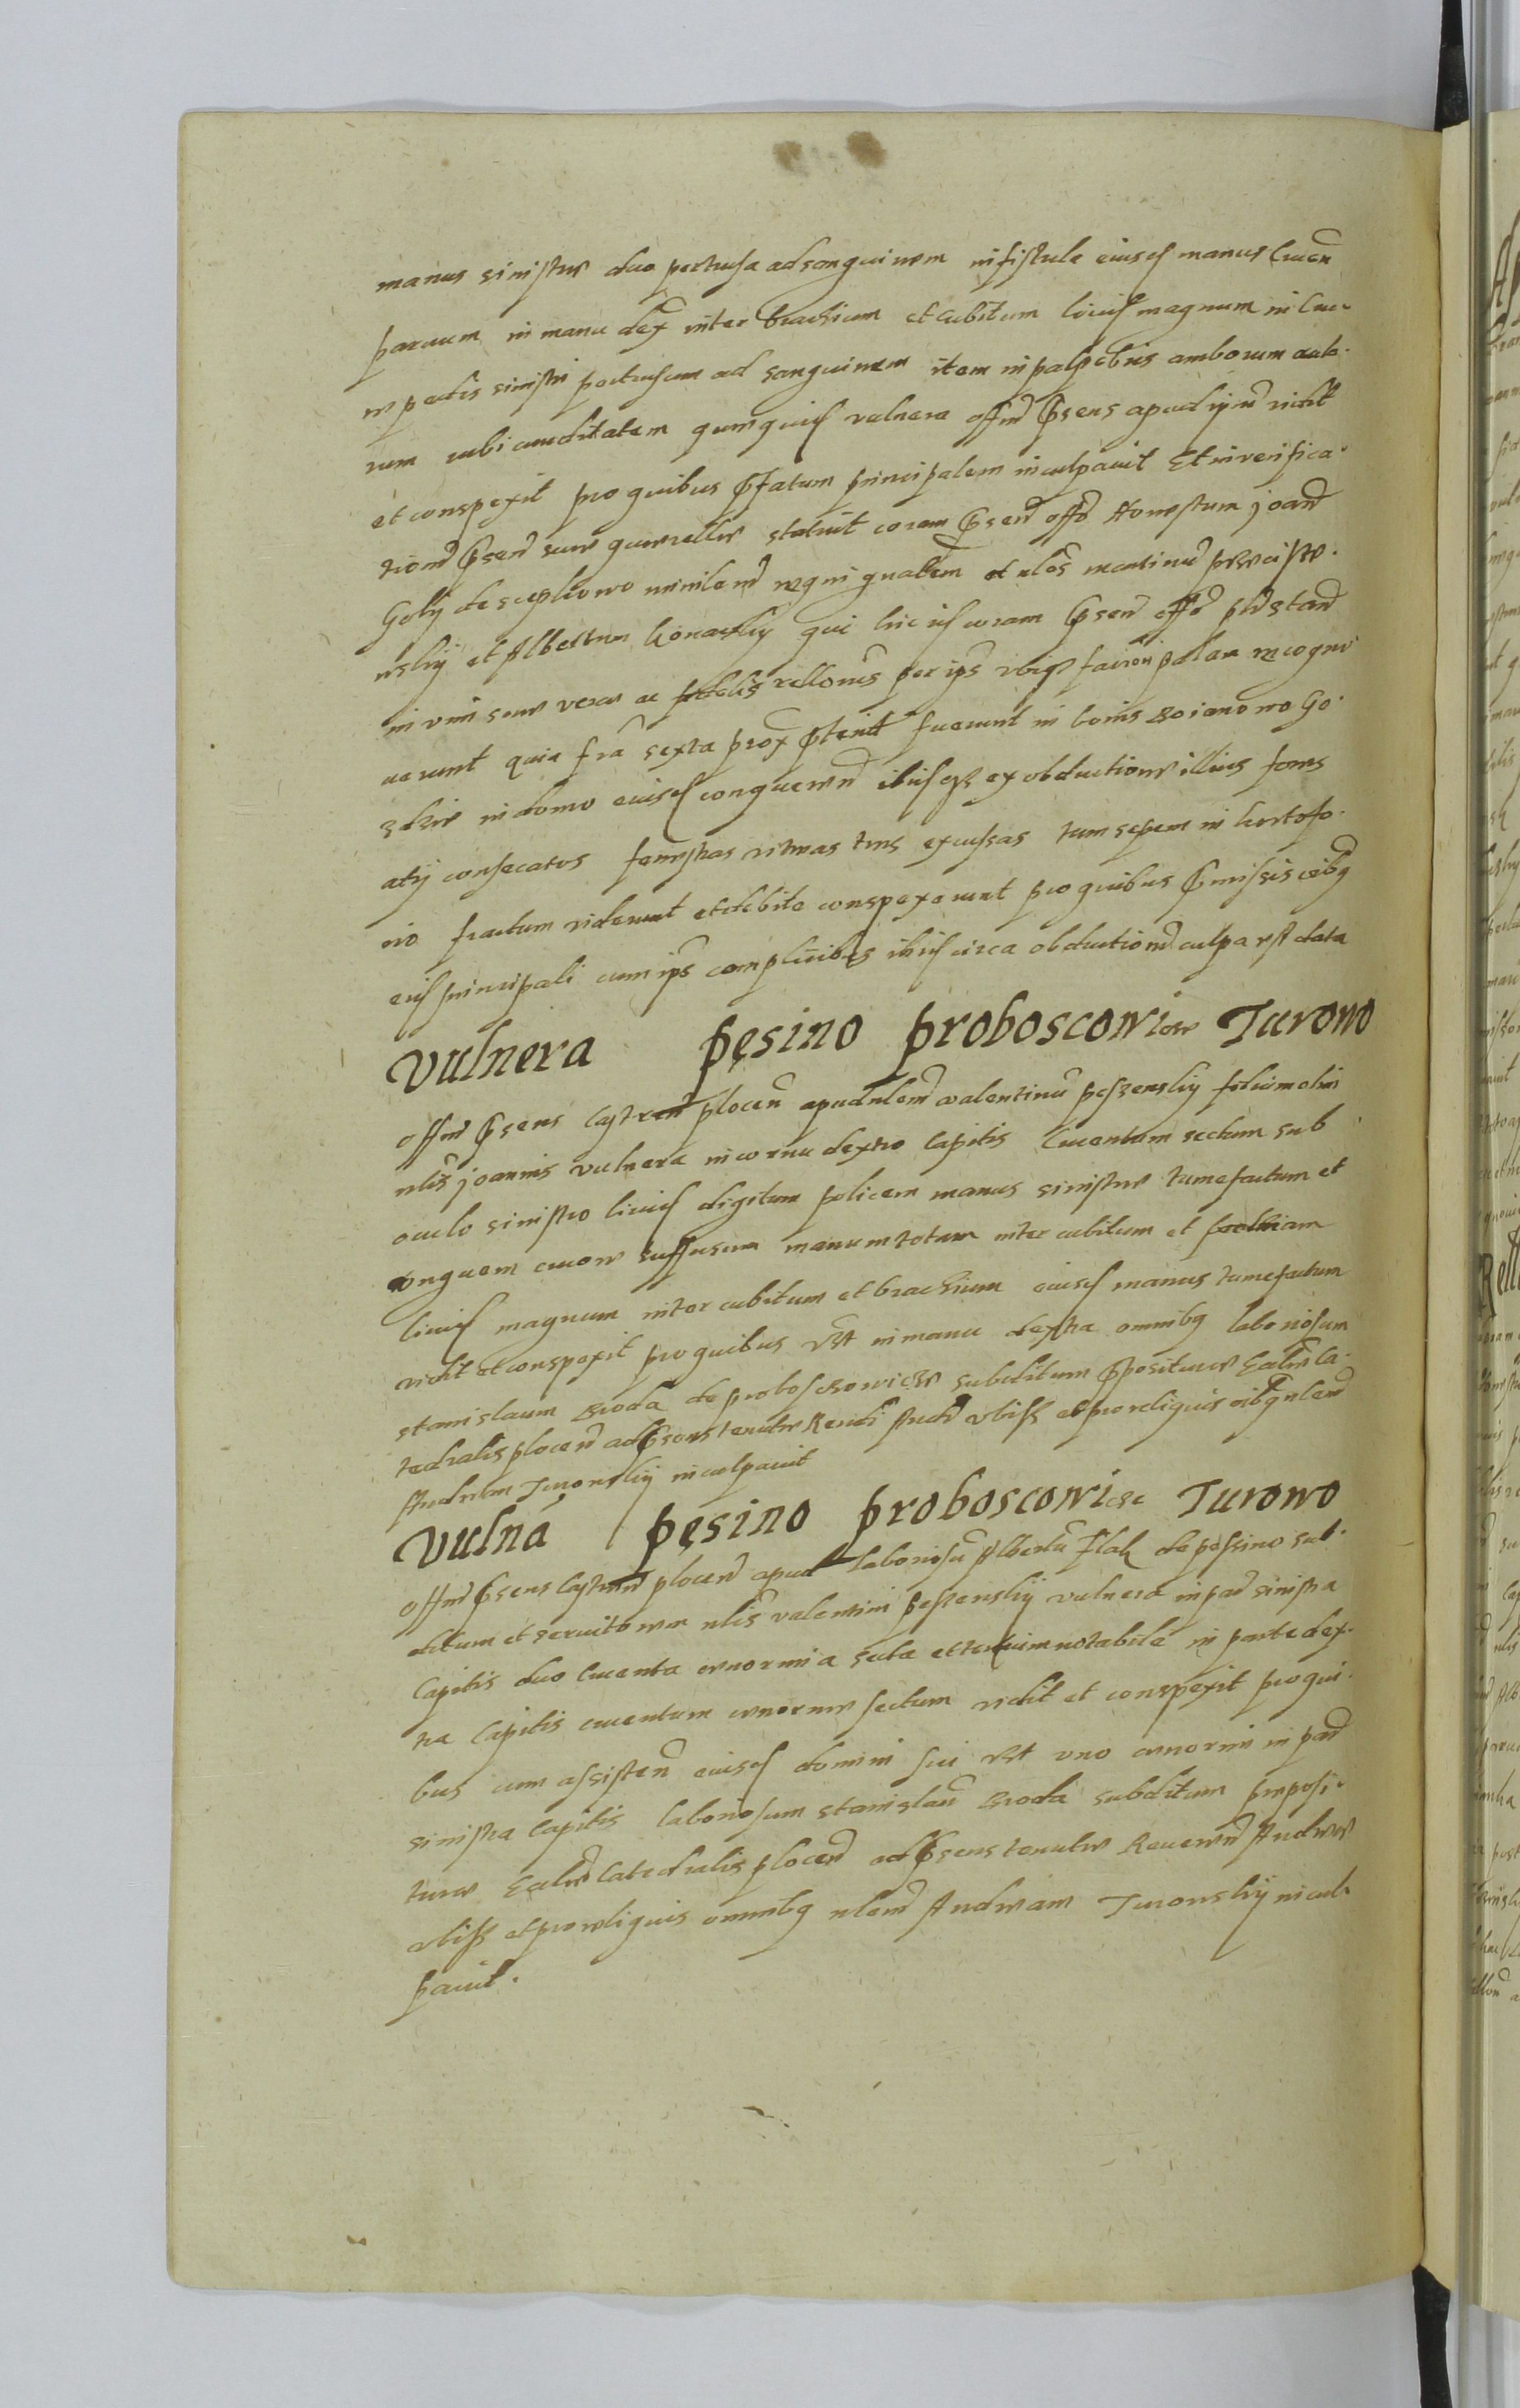 manus sinistrae duo pertusa ad sanguinem in fistula eiusd manus cruen
paruum in manu dex inter brachium et cubitum liuid magnum in cru-
re pedis sinistri pertusum ad sanguinem item in palpebris amborum oculo-
rum rubicunditatem quaequid vulnera offm psens apud ipm vidit
et conspexit pro quibus pfatum principalem inculpauit Et in verifica-
tionem psen suae querellae statuit coram psen offo Honestum joan
Goly de Scepkowo ministem regni gnalem et nlos martinu
et Albertum Konarskij qui hic id coram psen offo pstan
in vim suae verae ac fidelis rellonis per ips palam recogno
uerunt quia fra sexta prox ptenit fuerunt in bonis Boianowo Go-
zdzie in domo eiusd conqueren ibidqz ex obductione illius fores
atij consecatos fenestras vitreas tres excussas tum sepem in horto fo-
rio fractum viderunt et debite conspexerunt pro quibus pmissis eibq
eid principali cum ips complicibus ibid circa obductionem culpa est data
Vulnera Pęsino proboscowicze Turowo
offm psens Castren plocen apud nlem valentinu peszenskij filium olim
nlis joannis vulnera in cornu dextro Capitis Cruentum sectum sub
oculo sinistro liuid digitum policem manus sinistrae tumefactum et
vnguem cruore suffusum manum totam inter cubitum et
liuid magnum inter cubitum et brachium eiusd manus tumefactum
vidit et conspexit pro quibus vlt in manu dextra omnibq laboriosum
stanislaum Broda de proboszczowicze subditum ppositurae Eccliae Ca-
tedralis plocen ad psens tenutae Rendi Andr vbiss et pro reliquis oibq nlem
Andream Turowskij inculpauit
Vulna Pęsino proboscowicze Turowo
offm psens Castren plocen apud laboriosu Albertu Flak de pessino sub-
ditum et seruitorem nlis valentini peszenskij vulnera in par sinistra
Capitis duo Cruenta enormia secta et tertium notabile in parte dex-
tra Capitis cruentum enorme sectum vidit et conspexit pro qui-
bus cum assisten eiusd domini sui vlt vno enormi in par
sinistra Capitis laboriosum stanislau Broda subditum preposi-
turae Eccliae Catedralis plocen ad psens tenutae Reueren Andreae
vbiss et pro reliquis omnibq nlem Andream Turowskij incul-
pauit.